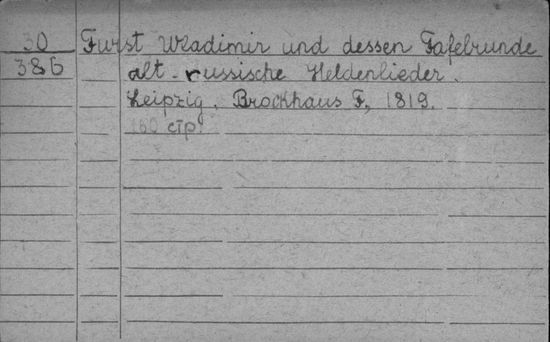 30
386
Furst Wladimir und dessen Tafelrunde
alt-russische Heldenlieder.
Leipzig, Brockhaus F, 1819.
160 стр.